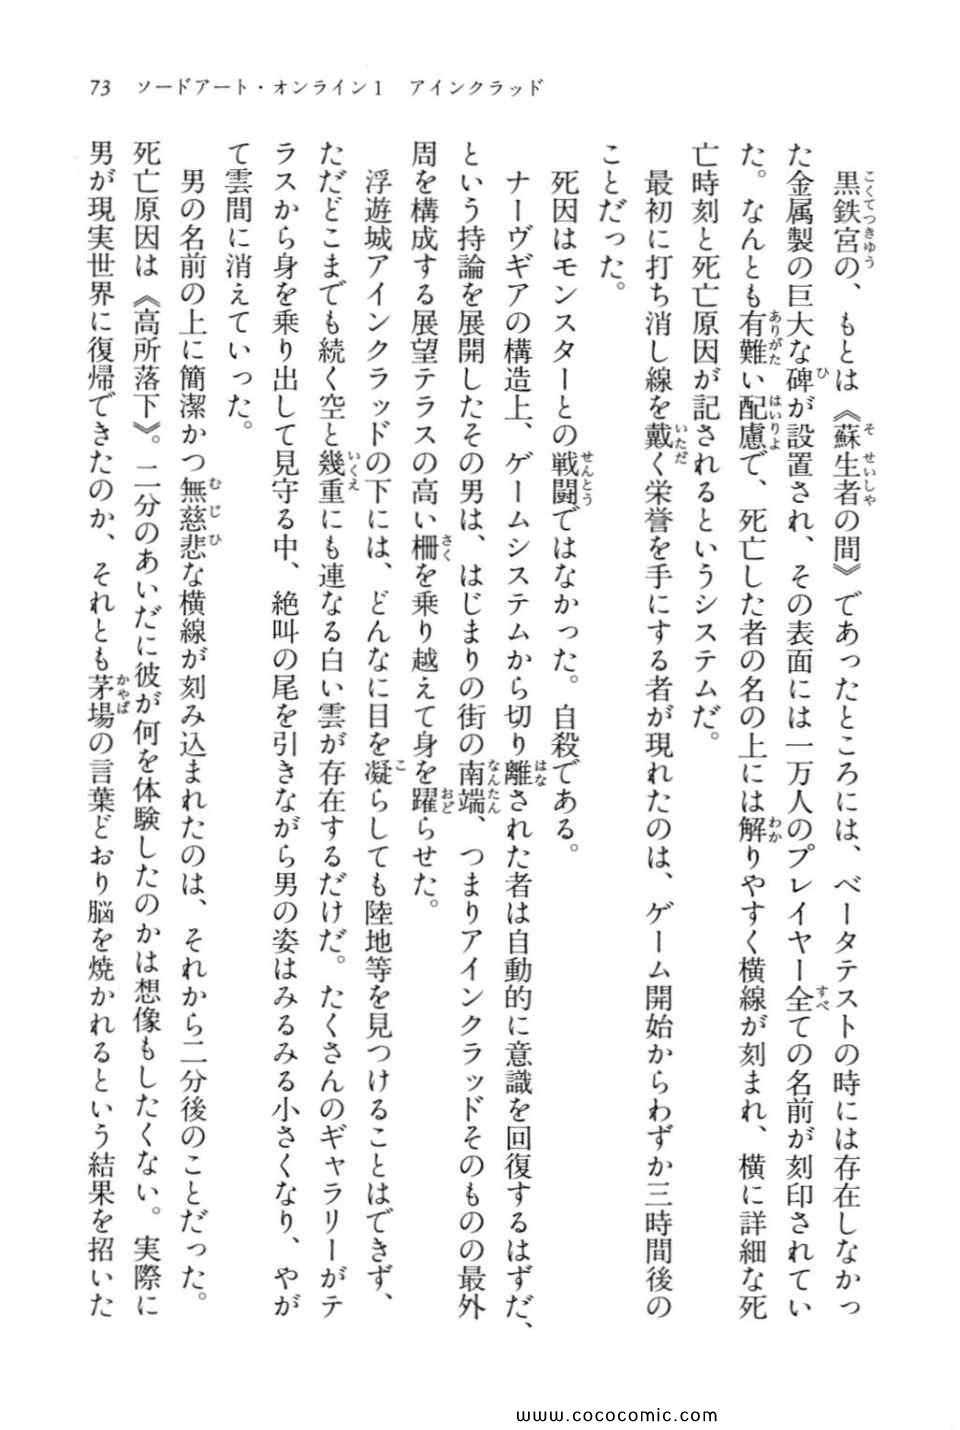 73 ソードアート・オンライン1 アインクラッド
黒鉄宮の、もとは《蘇生者の間》であったところには、ベータテストの時には存在しなかっ
た金属製の巨大な碑が設置され、その表面には一万人のプレイヤー全ての名前が刻印されてい
た。なんとも有難い配慮で、死亡した者の名の上には解りやすく横線が刻まれ、横に詳細な死
亡時刻と死亡原因が記されるというシステムだ。
最初に打ち消し線を戴く栄誉を手にする者が現れたのは、ゲーム開始からわずか三時間後の
ことだった。
死因はモンスターとの戦闘ではなかった。自殺である。
ナーヴギアの構造上、ゲームシステムから切り離された者は自動的に意識を回復するはずだ、
という持論を展開したその男は、はじまりの街の南端、つまりアインクラッドそのものの最外
周を構成する展望テラスの高い柵を乗り越えて身を躍らせた。
浮遊城アインクラッドの下には、どんなに目を凝らしても陸地等を見つけることはできず、
ただどこまでも続く空と幾重にも連なる白い雲が存在するだけだ。たくさんのギャラリーがテ
ラスから身を乗り出して見守る中、絶叫の尾を引きながら男の姿はみるみる小さくなり、やが
て雲間に消えていった。
男の名前の上に簡潔かつ無慈悲な横線が刻み込まれたのは、それから二分後のことだった。
死亡原因は《高所落下》。二分のあいだに彼が何を体験したのかは想像もしたくない。実際に
男が現実世界に復帰できたのか、それとも茅場の言葉どおり脳を焼かれるという結果を招いた
www.cococomic.com